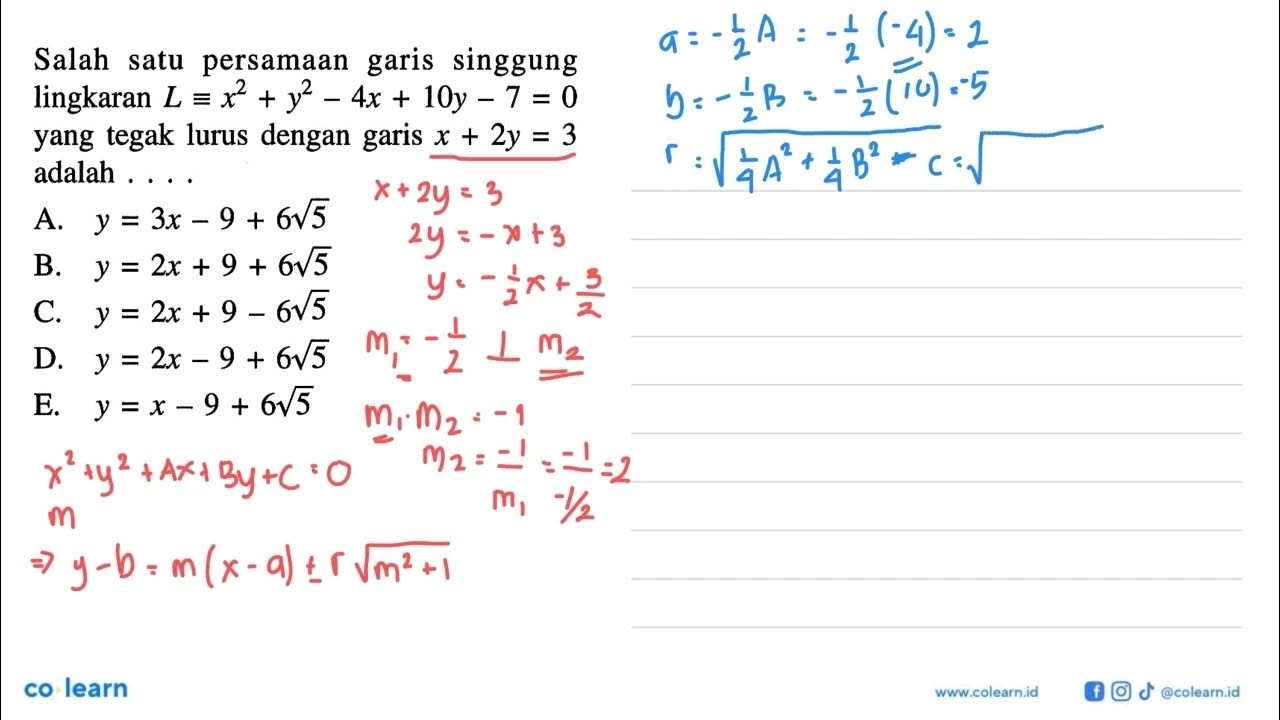 Salah satu persamaan garis singgung
lingkaran L ≡ x² + y² − 4x + 10y − 7 = 0
yang tegak lurus dengan garis x + 2y = 3
adalah . . . .
A. y = 3x − 9 + 6√5
B. y = 2x + 9 + 6√5
C. y = 2x + 9 − 6√5
D. y = 2x − 9 + 6√5
E. y = x − 9 + 6√5
x² + y² + Ax + By + C = 0
m
⇒ y − b = m (x − a) ± r √m² + 1
x + 2y = 3
2y = − x + 3
y = − 1/2 x + 3/2
m₁ = − 1/2 ⊥ m₂
m₁ . m₂ = −1
m₂ = −1/m₁ = −1/−1/2 = 2
a = − 1/2 A = − 1/2 (−4) = 2
b = − 1/2 B = − 1/2 (10) = −5
r = √1/4 A² + 1/4 B² − C = √
co learn
www.colearn.id
@colearn.id